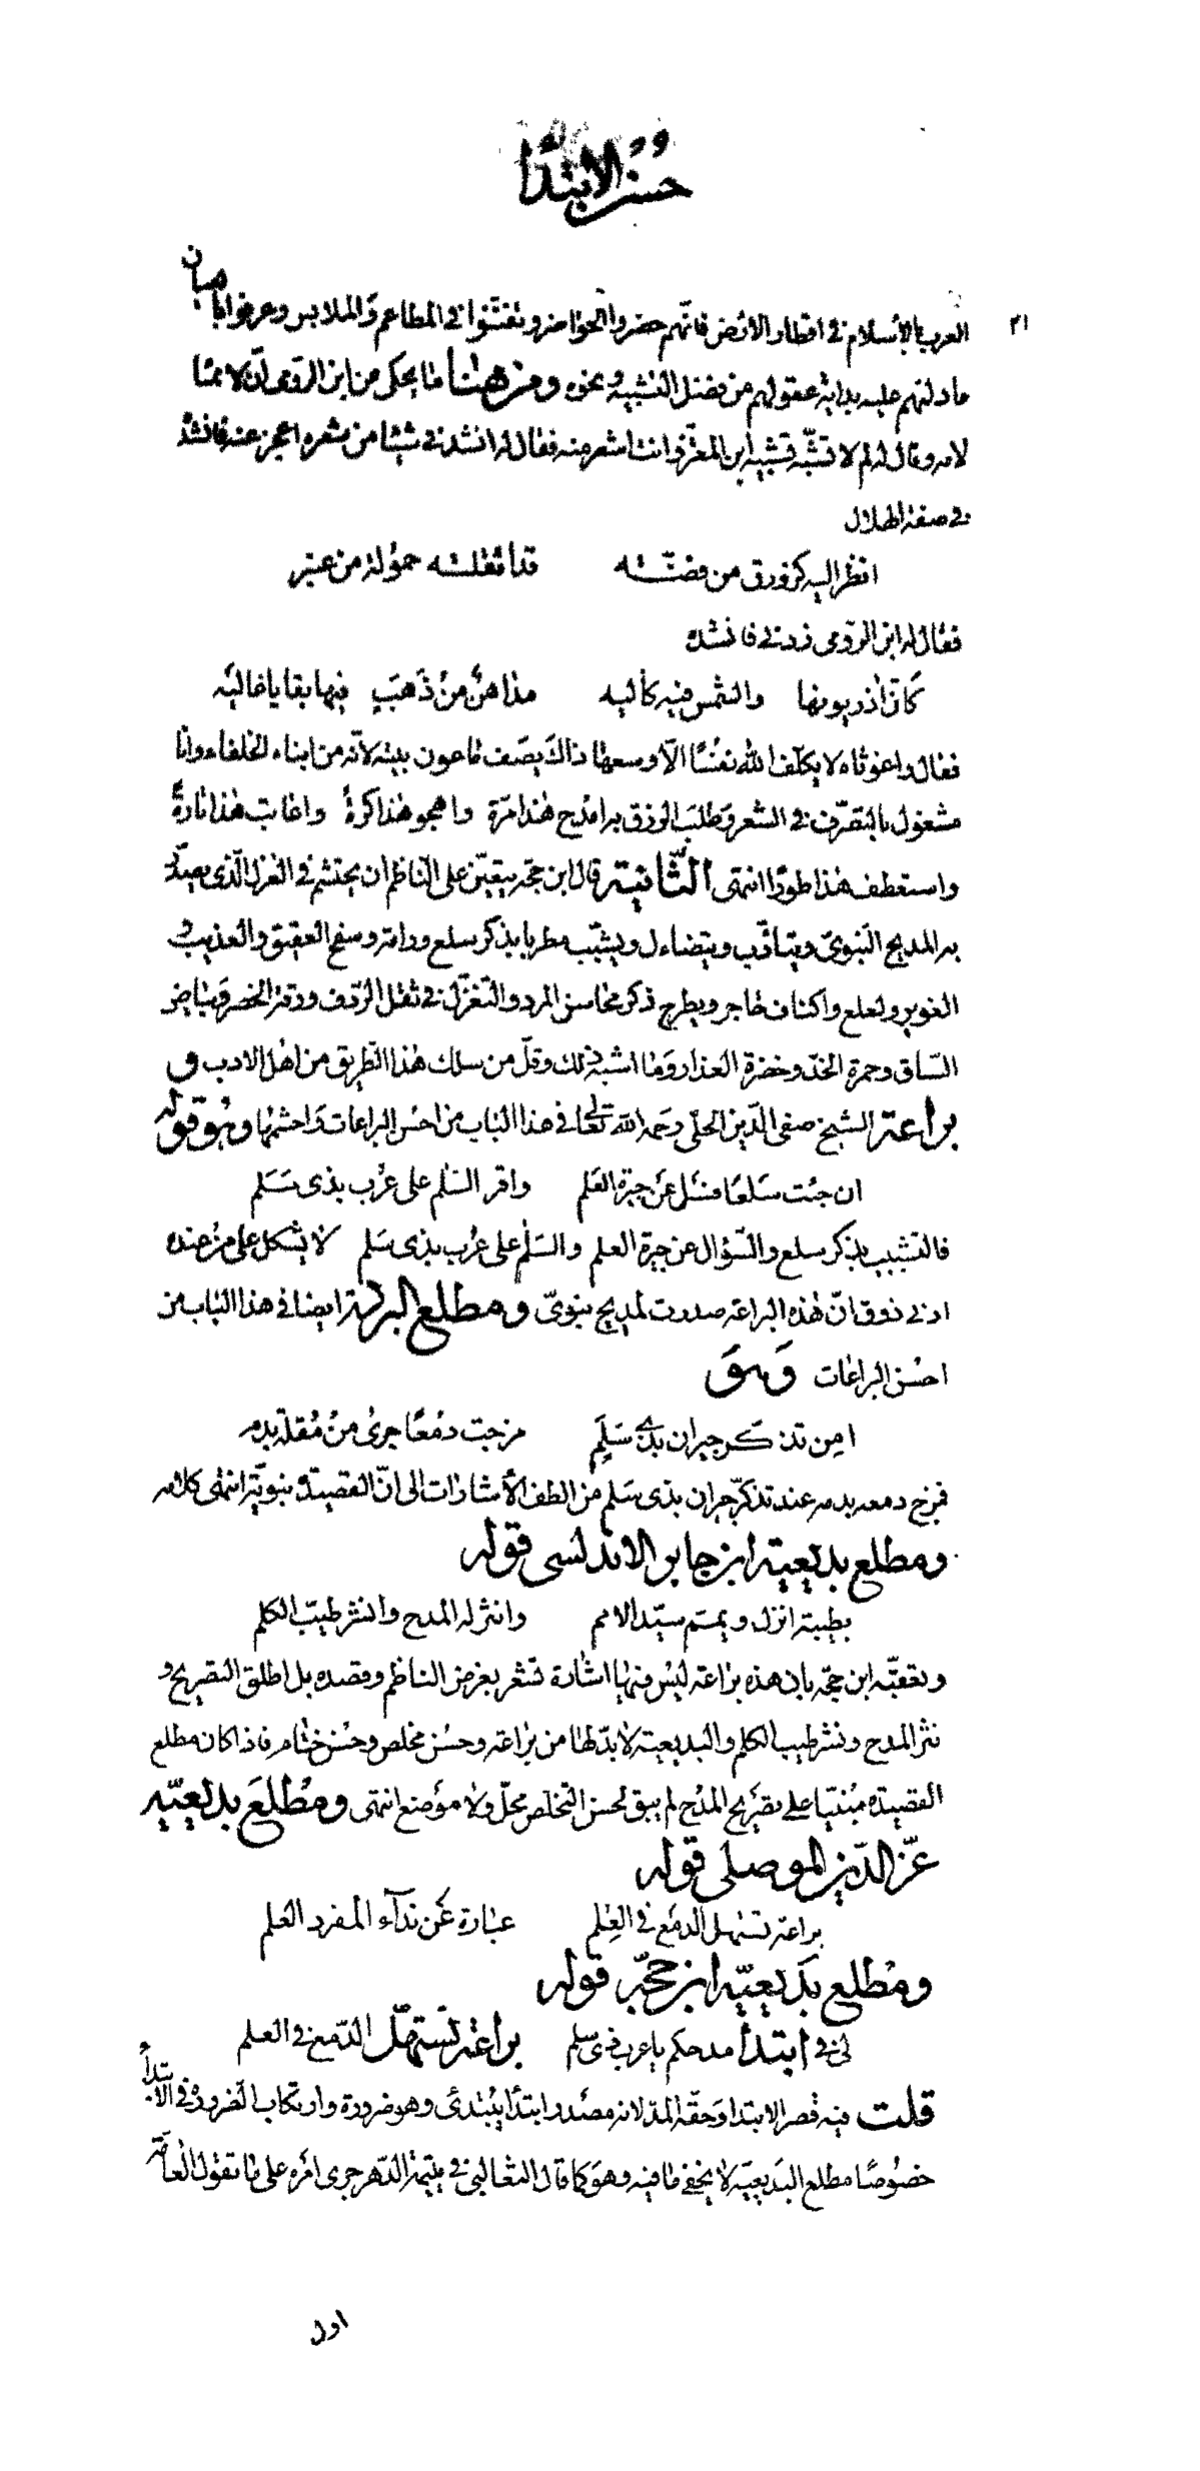 حسن الابتداء
٢١
العرب بالإسلام في اقطار الارض فانهم حضروا الحواضر وتفننوا في المطاعم والملابس وعرفوا بالعيان
ما دلتهم عليه بداية عقولهم من فضل التشبيه ونحوه ومن هنا ما يحكى من ابن الرومي ان لائما
لامه وقال له لم لا تشبه تشبيه ابن المعتز وانت اشعر منه فقال له انشدني شيئا من شعره اعجز عنه فانشد
في صفة الهلال
انظر اليه كزورق من فضته قد اثقلته حمولة من عنبر
فقال له ابن الرومي زدني فانشده
كأن آذريونها والشمس فيه كاليه مداهن من ذهب فيها بقايا غاليه
فقال واغوثاه لا يكلف الله نفسا الا وسعها ذاك يصف ماعون بيته لانه من ابناء الخلفاء وانا
مشغول بالتصرف في الشعر وطلب الرزق به امدح هذا مرة واهجو هذا كرة واعاتب هذا تارة
واستعطف هذا طورا انتهى الثانية قال ابن حجة يتعين على الناظم ان يحتشم في الغزل الذي يصدر
به المديح النبوي ويتأدب ويتضاءل ويشبب مطربا بذكر سلع ورامة وسفح العقيق والعذيب و
الغوير ولعلع واكناف حاجر ويطرح ذكر محاسن المرد والتغزل في ثقل الردف ورقة الخصر وبياض
الساق وحمرة الخد وخضرة العذار وما اشبه ذلك وقل من سلك هذا الطريق من اهل الادب و
براعة الشيخ صفي الدين الحلي رحمه الله تعالى في هذا الباب من احسن البراعات واحشمها وهو قوله
ان جئت سلعا فسل عن جيرة العلم واقر السلم على عرب بذي سلم
فالتشبيب بذكر سلع والسؤال عن جيرة العلم والسلم على عرب بذي سلم لا يشكل على من عنده
ادنى ذوق ان هذه البراعة صدرت لمديح نبوي ومطلع البردة ايضا في هذا الباب من
احسن البراعات وهو
امن تذكر جيران بذي سلم مزجت دمعا جرى من مقلة بدم
فمزج دمعه بدمه عند تذكر جيران بذي سلم من الطف الأشارات الى ان القصيدة نبوية انتهى كلامه
ومطلع بديعية ابن جابر الاندلسي قوله
بطيبة انزل ويمم سيد الامم وانثر له المدح وانشر طيب الكلم
وتعقبه ابن حجة بان هذه براعة ليس فيها اشارة تشعر بغرض الناظم وقصده بل اطلق التصريح و
نثر المدح ونشر طيب الكلم والبديعية لا بد لها من براعة وحسن مخلص وحسن ختام فاذا كان مطلع
القصيدة مبنيا على تصريح المدح لم يبق لحسن التخلص محل ولا موضع انتهى ومطلع بديعية
عز الدين الموصلي قوله
براعة تستهل الدمع في العلم عبارة عن نداء المفرد العلم
ومطلع بديعية ابن حجة قوله
لي في ابتدا مدحكم يا عرب ذي سلم براعة تستهل الدمع في العلم
قلت فيه قصر الابتدا وحقه المد لانه مصدر ابتدأ يبتدئ وهو ضرورة وارتكاب الضرورة في الابتدأ
خصوصا مطلع البديعية لا يخفى ما فيه وهو كما قال الثعالبي في يتيمة الدهر جرى امره على ما تقول العامة
اول